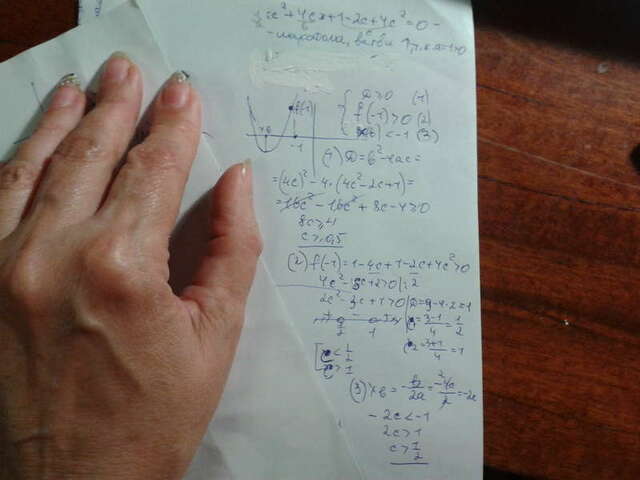 x²+4cx+1-2c+4c²=0 -
- парабола, ветви ↑, т.к. a=1>0
f(-1)
x₀
-1
{ D≥0 (1)
f(-1)>0 (2)
< -1 (3)
(1) D=b²-4ac=
=(4c)²-4·(4c²-2c+1)=
=16c²-16c²+8c-4≥0
8c≥4
c≥0,5
(2) f(-1)=1-4c+1-2c+4c²>0
4c²-6c+2>0 |:2
2c²-3c+1>0 | D=9-4·2=1
+ - +
1/2 1
c₁=3-1/4=1/2
c₂=3+1/4=1
[ c<1/2
c>1
(3) x₀=-b/2a=-4c/2=-2c
-2c<-1
2c>1
c>1/2